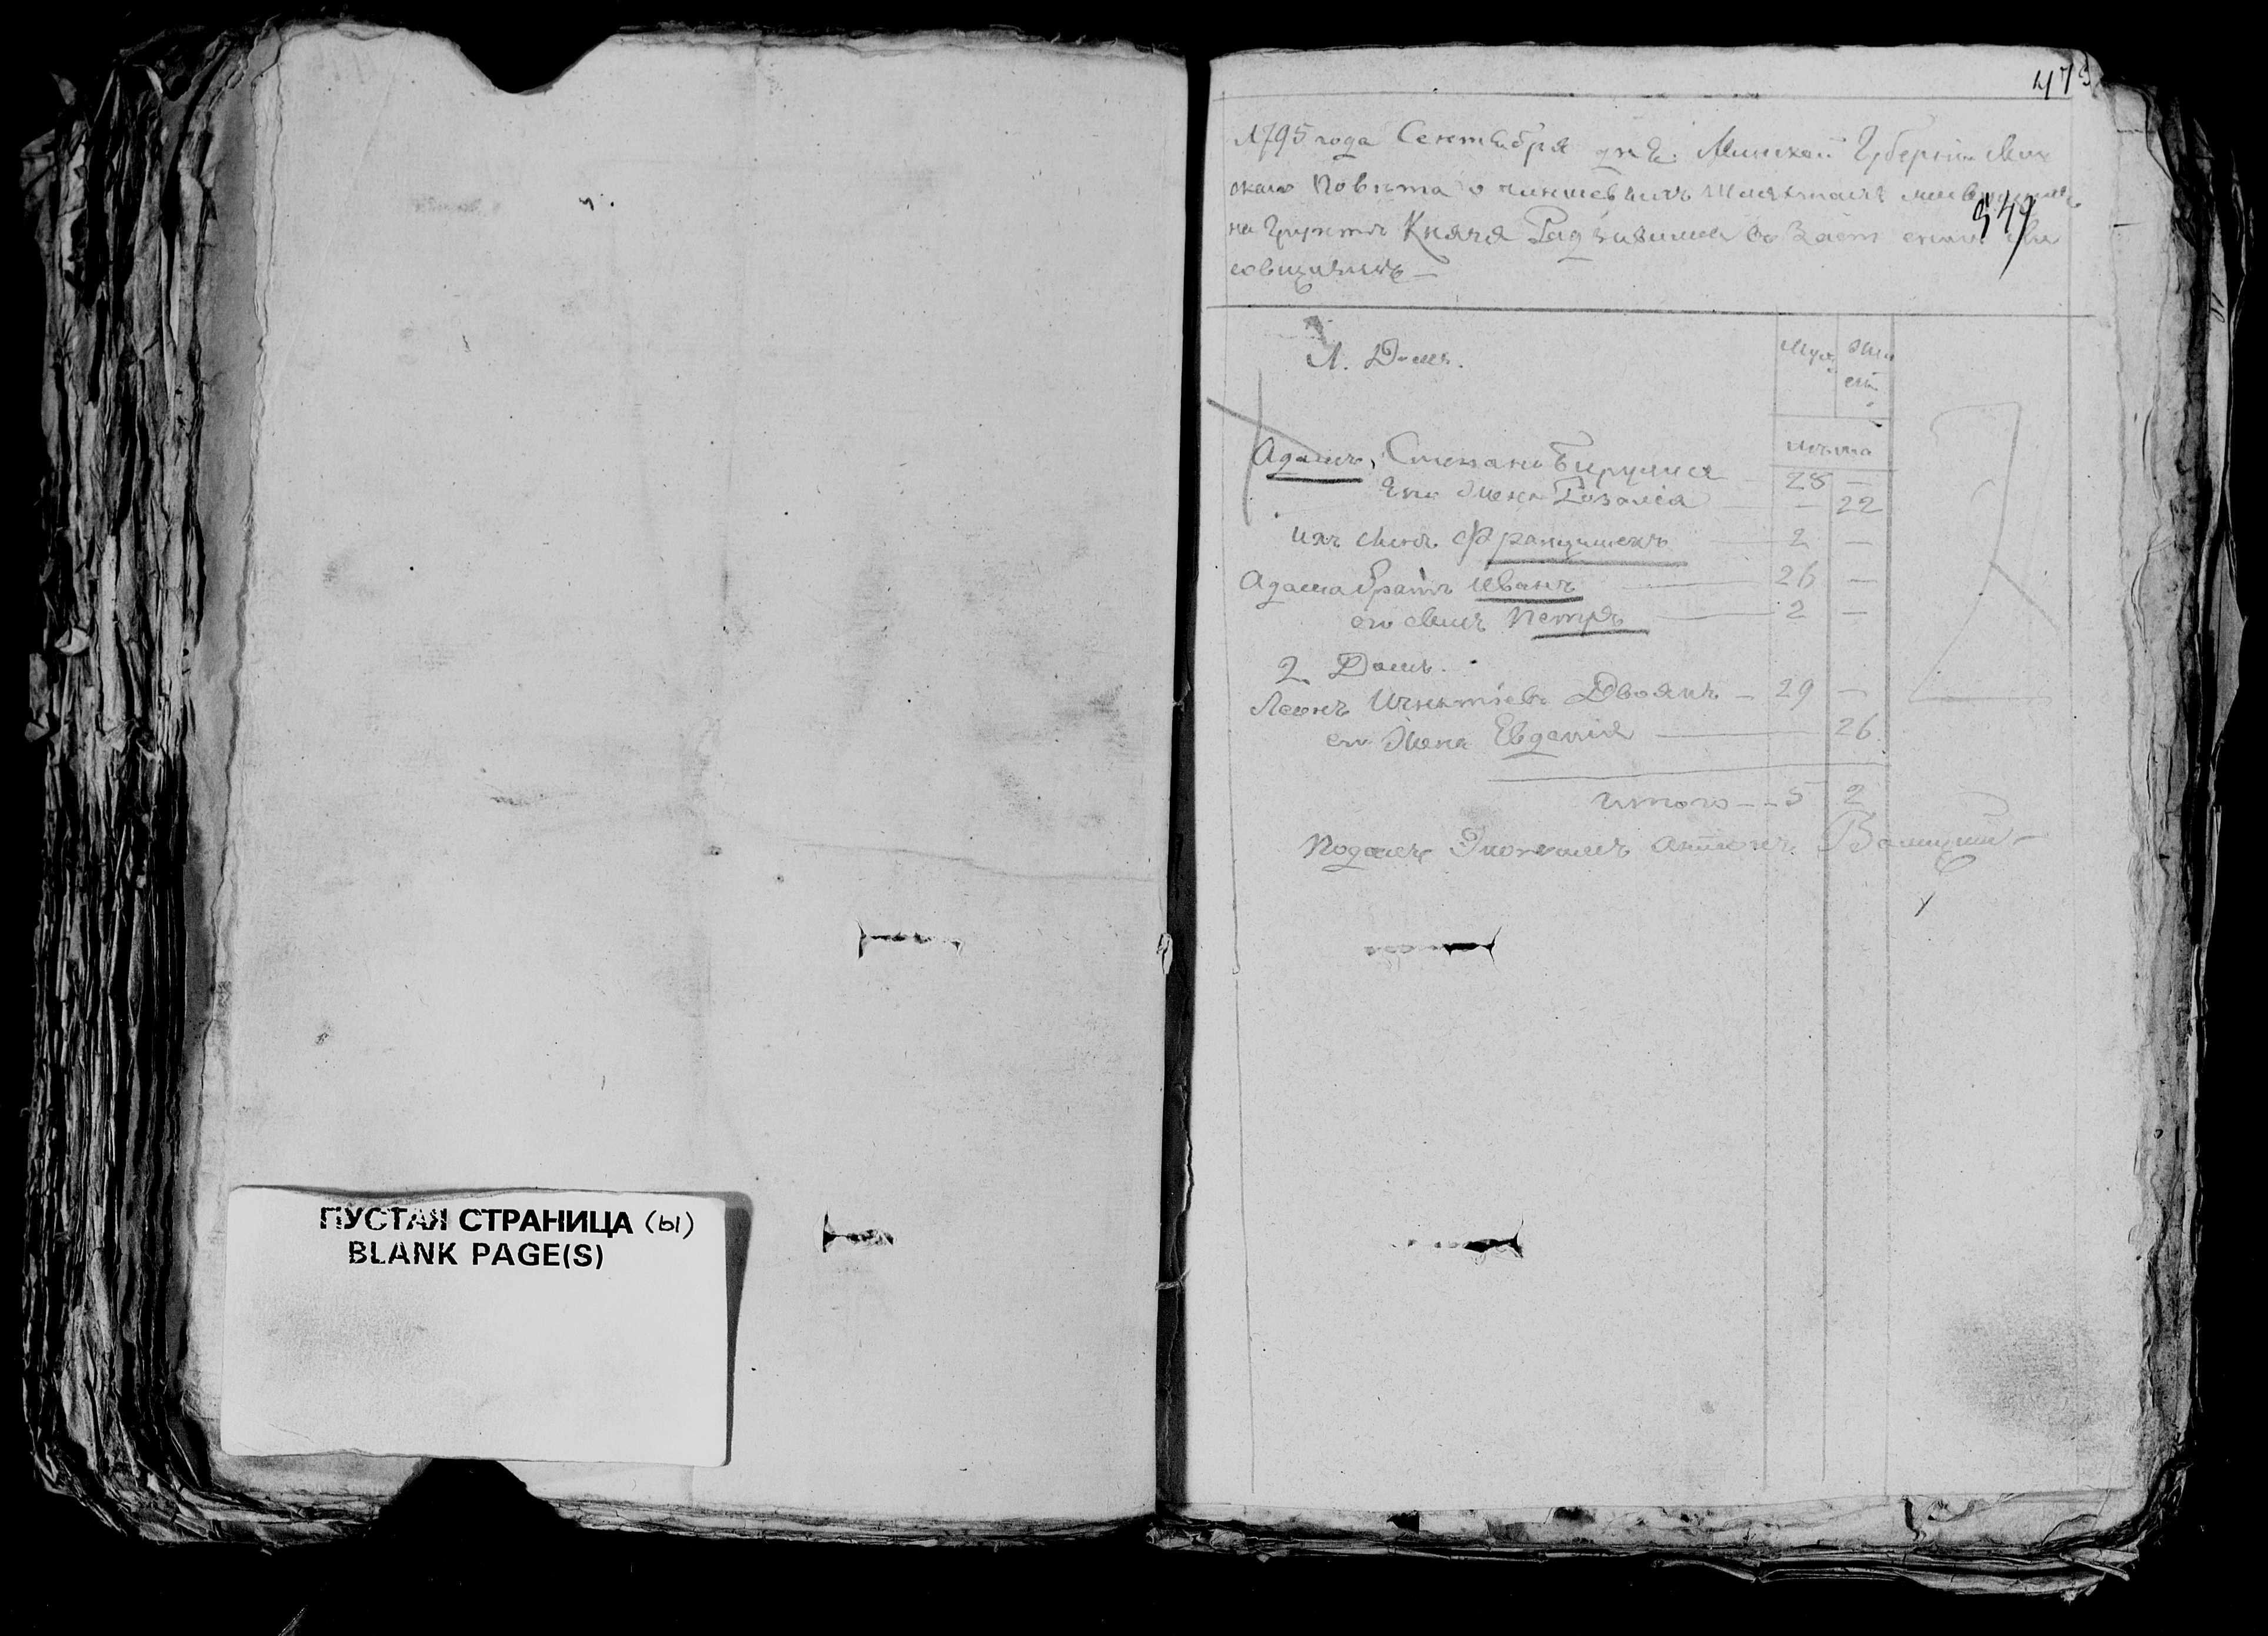 ПУСТАЯ СТРАНИЦА (ы)
BLANK PAGE(S)
475
1795 года Сентября дня. Минской Губернии Мин
скаго Повѣта о чиншевыхъ Шляхтахъ
547
на Грунтѣ Князя Радзивила въ
1. Домъ.
Муж. Жен
ск.
лѣта
Адамъ, Степана Бируля 28 —
Его Жена Розалія — 22
ихъ сынъ Францишекъ 2 —
Адама братъ Иванъ 26 —
его сынъ Петръ 2 —
2 Домъ.
Леонъ Игнатіевъ Двоянъ — 29 —
его Жена Евдокія 26.
Итого — 5 2
Подалъ Экономъ Антонъ